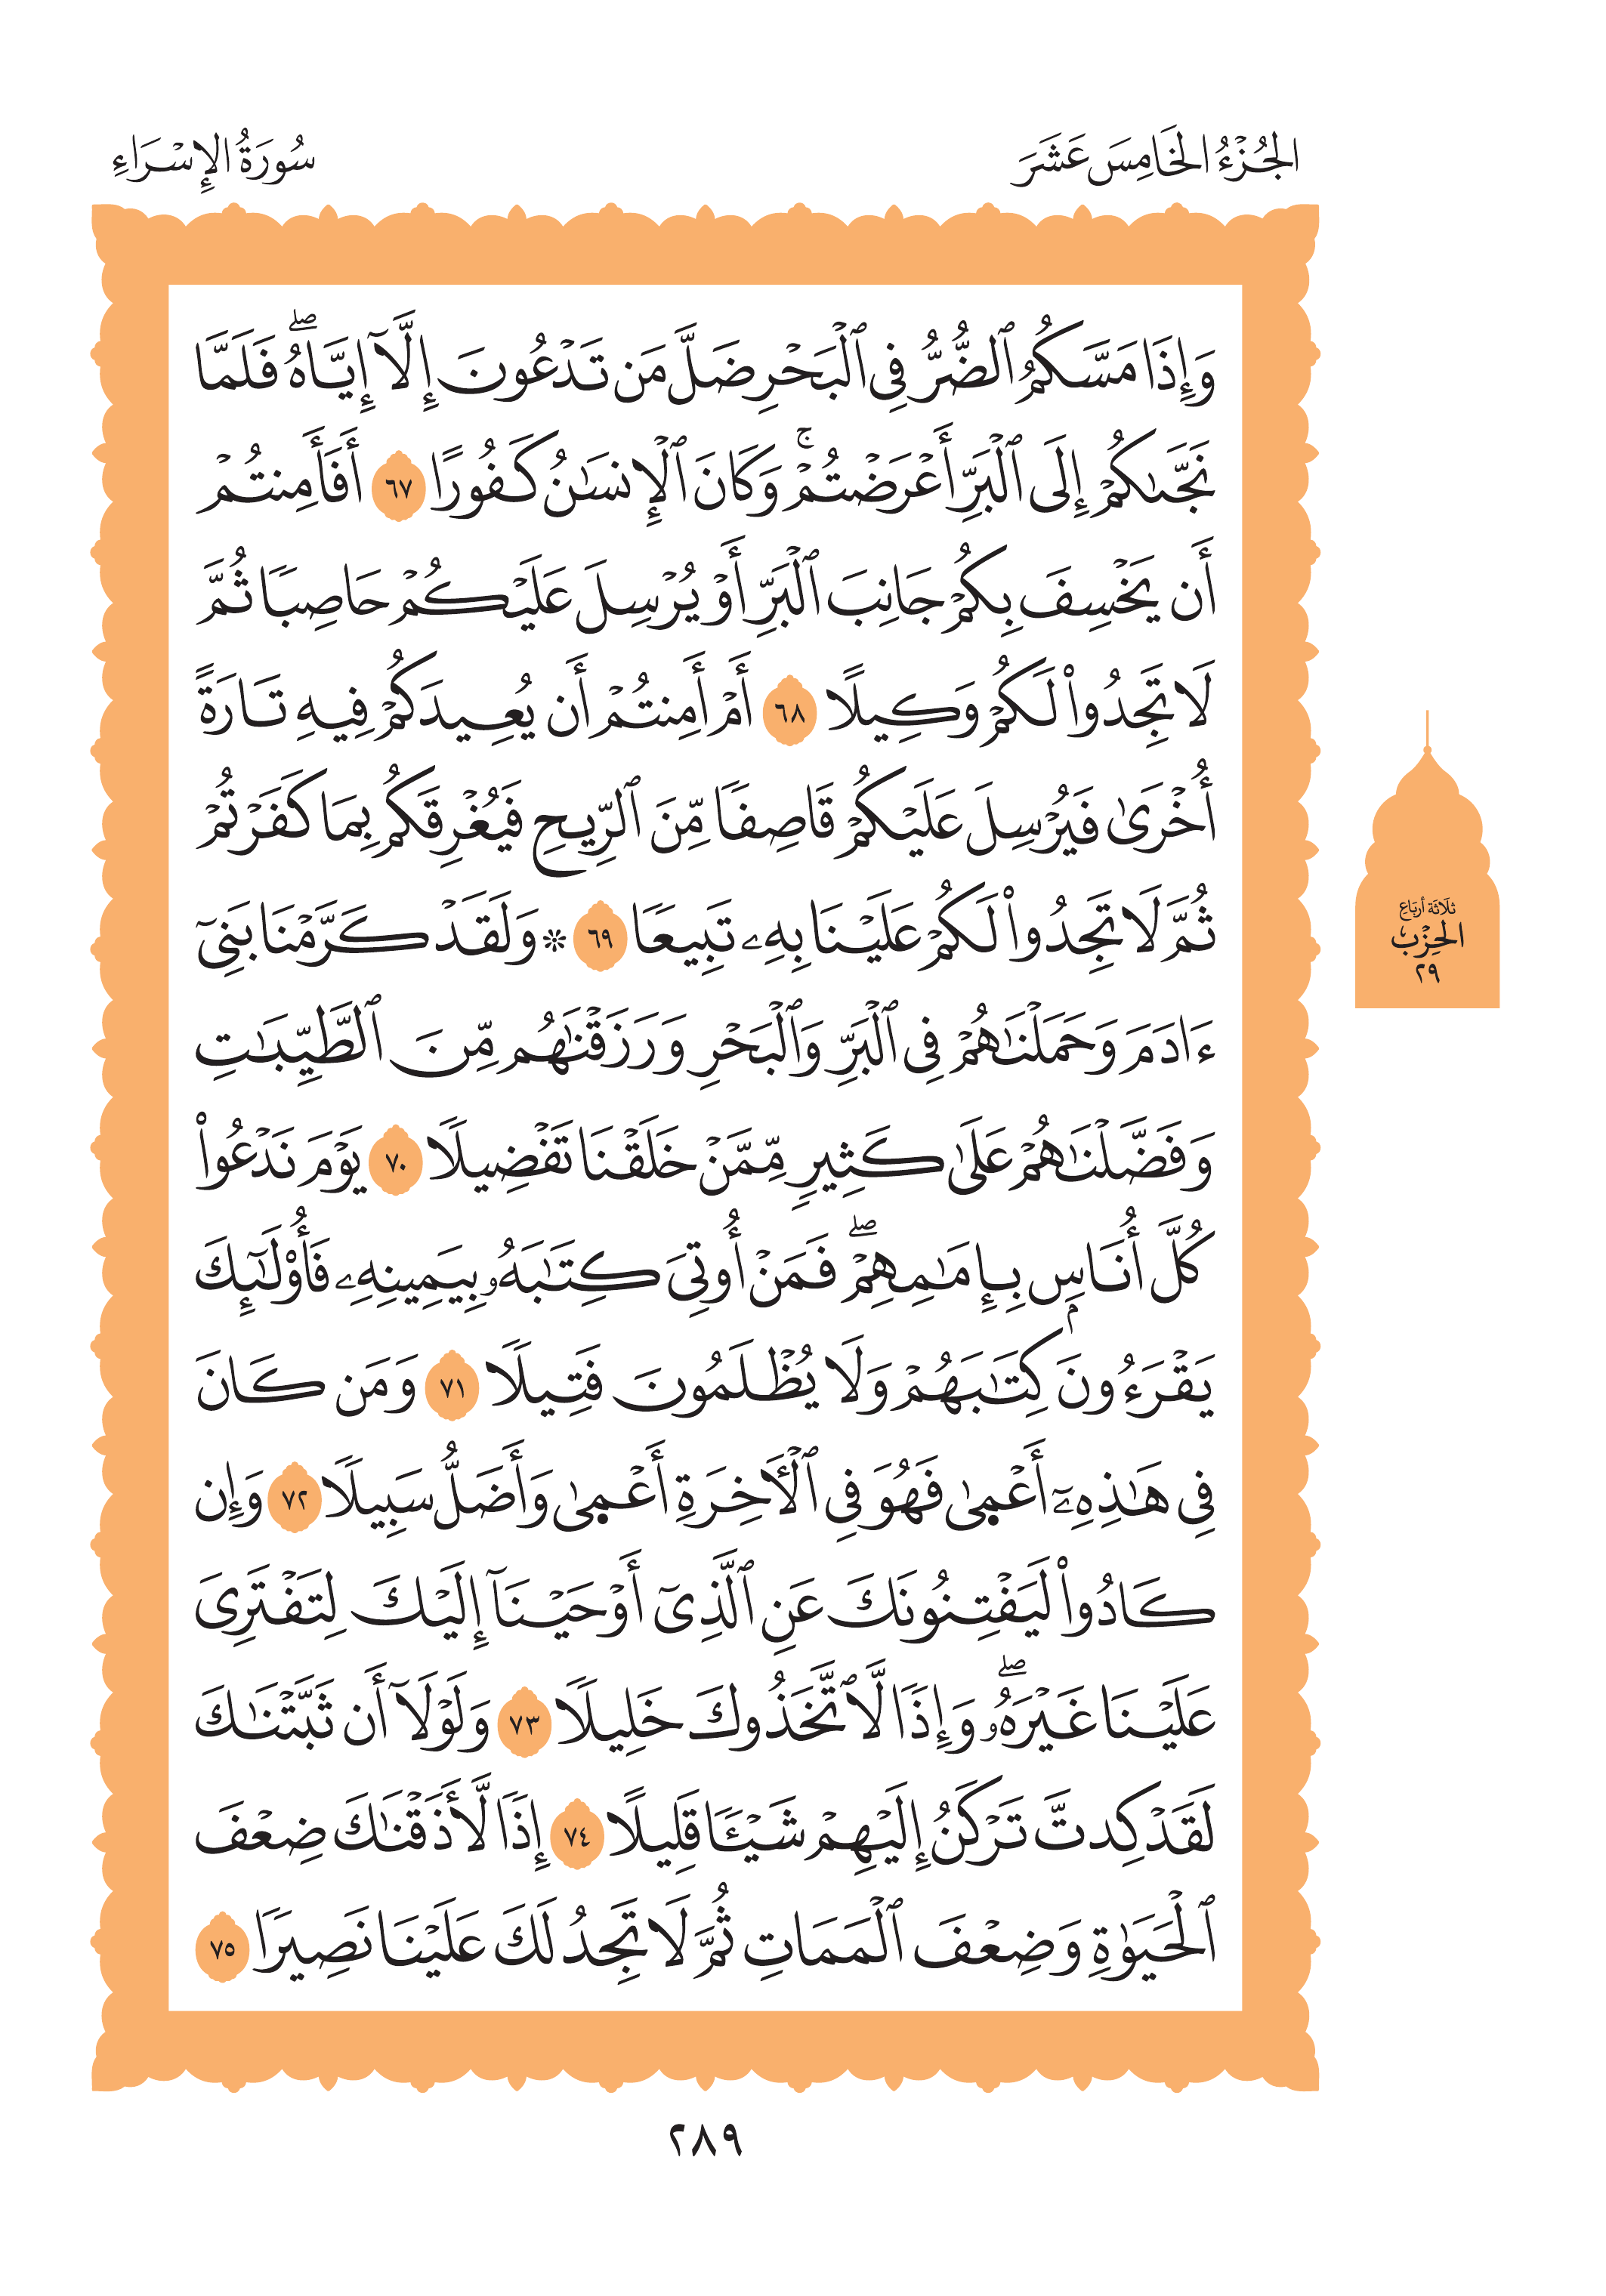 الجُزْءُ الخَامِسَ عَشَرَ
سُورَةُ الإِسْرَاءِ
وَإِذَا مَسَّكُمُ ٱلضُّرُّ فِى ٱلْبَحْرِ ضَلَّ مَن تَدْعُونَ إِلَّآ إِيَّاهُ ۖ فَلَمَّا
نَجَّىٰكُمْ إِلَى ٱلْبَرِّ أَعْرَضْتُمْ ۚ وَكَانَ ٱلْإِنسَـٰنُ كَفُورًا ٦٧ أَفَأَمِنتُمْ
أَن يَخْسِفَ بِكُمْ جَانِبَ ٱلْبَرِّ أَوْ يُرْسِلَ عَلَيْكُمْ حَاصِبًا ثُمَّ
لَا تَجِدُوا۟ لَكُمْ وَكِيلًا ٦٨ أَمْ أَمِنتُمْ أَن يُعِيدَكُمْ فِيهِ تَارَةً
أُخْرَىٰ فَيُرْسِلَ عَلَيْكُمْ قَاصِفًا مِّنَ ٱلرِّيحِ فَيُغْرِقَكُم بِمَا كَفَرْتُمْ
ثُمَّ لَا تَجِدُوا۟ لَكُمْ عَلَيْنَا بِهِۦ تَبِيعًا ٦٩ ۞ وَلَقَدْ كَرَّمْنَا بَنِىٓ
ءَادَمَ وَحَمَلْنَـٰهُمْ فِى ٱلْبَرِّ وَٱلْبَحْرِ وَرَزَقْنَـٰهُم مِّنَ ٱلطَّيِّبَـٰتِ
وَفَضَّلْنَـٰهُمْ عَلَىٰ كَثِيرٍ مِّمَّنْ خَلَقْنَا تَفْضِيلًا ٧٠ يَوْمَ نَدْعُوا۟
كُلَّ أُنَاسٍۭ بِإِمَـٰمِهِمْ ۖ فَمَنْ أُوتِىَ كِتَـٰبَهُۥ بِيَمِينِهِۦ فَأُو۟لَـٰٓئِكَ
يَقْرَءُونَ كِتَـٰبَهُمْ وَلَا يُظْلَمُونَ فَتِيلًا ٧١ وَمَن كَانَ
فِى هَـٰذِهِۦٓ أَعْمَىٰ فَهُوَ فِى ٱلْـَٔاخِرَةِ أَعْمَىٰ وَأَضَلُّ سَبِيلًا ٧٢ وَإِن
كَادُوا۟ لَيَفْتِنُونَكَ عَنِ ٱلَّذِىٓ أَوْحَيْنَآ إِلَيْكَ لِتَفْتَرِىَ
عَلَيْنَا غَيْرَهُۥ ۖ وَإِذًا لَّٱتَّخَذُوكَ خَلِيلًا ٧٣ وَلَوْلَآ أَن ثَبَّتْنَـٰكَ
لَقَدْ كِدتَّ تَرْكَنُ إِلَيْهِمْ شَيْـًٔا قَلِيلًا ٧٤ إِذًا لَّأَذَقْنَـٰكَ ضِعْفَ
ٱلْحَيَوٰةِ وَضِعْفَ ٱلْمَمَاتِ ثُمَّ لَا تَجِدُ لَكَ عَلَيْنَا نَصِيرًا ٧٥
ثلاثة أرباع
الحِزْب
٢٩
٢٨٩